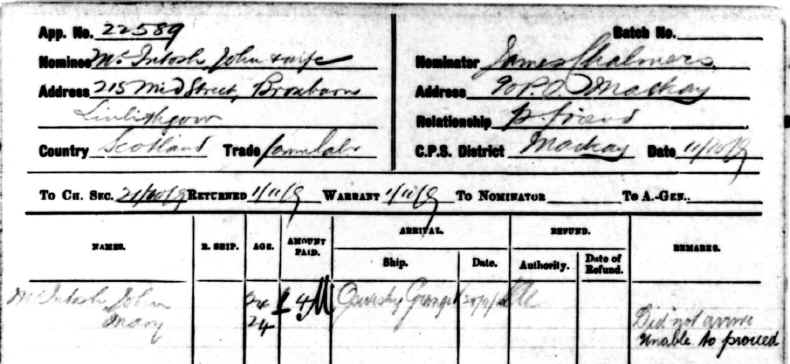 App. No. 22589 Batch No.
Nominee McIntosh John & wife Nominator James Chalmers
Address 215 Mid Street, Broxburn Address G.P.O. Mackay
Linlithgow Relationship friend
Country Scotland Trade farm labr C.P.S. District Mackay Date
To Ch. Sec. Returned 1/11/9 Warrant 1/11/9 To Nominator To A.-Gen.
NAMES. R. SHIP. AGE. AMOUNT PAID. ARRIVAL. REFUND. REMARKS.
Ship. Date. Authority. Date of Refund.
McIntosh John £4
Mary 24
Did not arrive
Unable to proceed